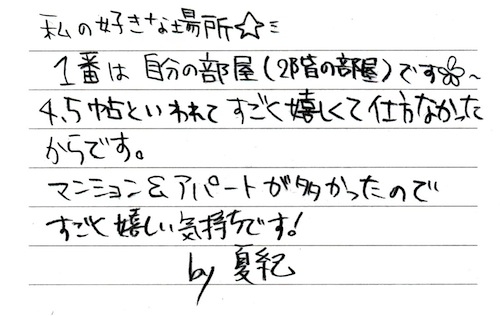 私の好きな場所☆ミ
1番は自分の部屋(2階の部屋)です✿～
4.5帖といわれてすごく嬉しくて仕方なかった
からです。
マンション&アパートが多かったので
すごく嬉しい気持ちです!
by 夏紀